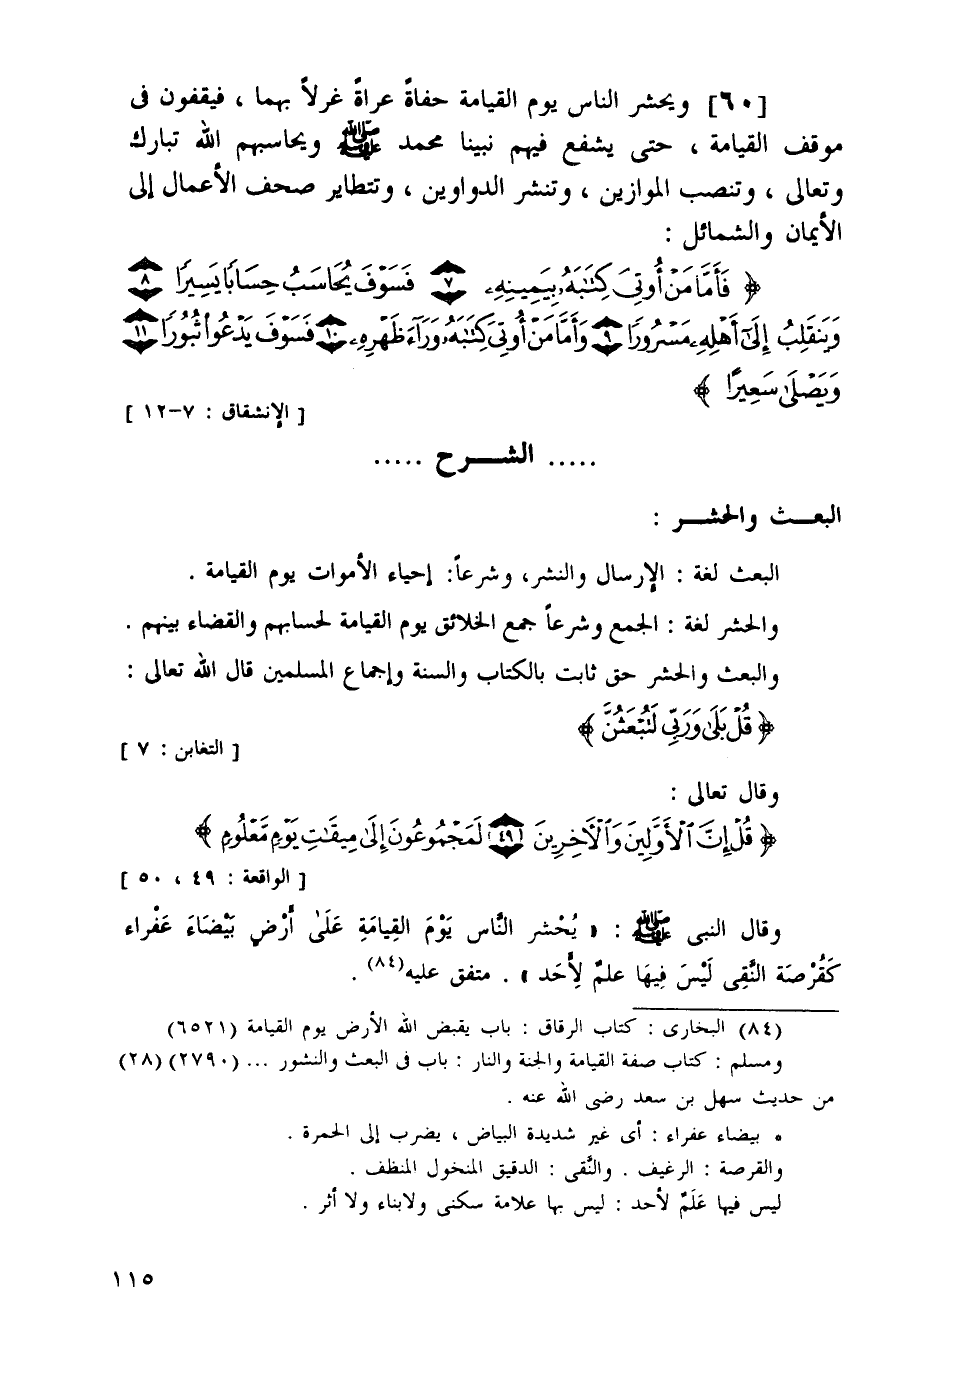 [٦٠] ويحشر الناس يوم القيامة حفاةً عراةً غرلاً بهما ، فيقفون فى
موقف القيامة ، حتى يشفع فيهم نبينا محمد ﷺ ويحاسبهم الله تبارك
وتعالى ، وتنصب الموازين ، وتنشر الدواوين ، وتتطاير صحف الأعمال إلى
الأيمان والشمائل :
﴿ فَأَمَّا مَنْ أُوتِىَ كِتَٰبَهُۥ بِيَمِينِهِۦ ٧ فَسَوْفَ يُحَاسَبُ حِسَابًا يَسِيرًا ٨
وَيَنقَلِبُ إِلَىٰٓ أَهْلِهِۦ مَسْرُورًا ٩ وَأَمَّا مَنْ أُوتِىَ كِتَٰبَهُۥ وَرَآءَ ظَهْرِهِۦ ١٠ فَسَوْفَ يَدْعُوا۟ ثُبُورًا ١١
وَيَصْلَىٰ سَعِيرًا ﴾
[ الإنشقاق : ٧-١٢ ]
..... الشـــرح .....
البعـــث والحشـــر :
البعث لغة : الإرسال والنشر، وشرعاً: إحياء الأموات يوم القيامة .
والحشر لغة : الجمع وشرعاً جمع الخلائق يوم القيامة لحسابهم والقضاء بينهم .
والبعث والحشر حق ثابت بالكتاب والسنة وإجماع المسلمين قال الله تعالى :
﴿ قُلْ بَلَىٰ وَرَبِّى لَتُبْعَثُنَّ ﴾
[ التغابن : ٧ ]
وقال تعالى :
﴿ قُلْ إِنَّ ٱلْأَوَّلِينَ وَٱلْءَاخِرِينَ ٤٩ لَمَجْمُوعُونَ إِلَىٰ مِيقَٰتِ يَوْمٍ مَّعْلُومٍ ﴾
[ الواقعة : ٤٩ ، ٥٠ ]
وقال النبى ﷺ : « يُحْشر النَّاس يَوْمَ القِيامَةِ عَلَىٰ أَرْضٍ بَيْضَاءَ عَفْراء
كَقُرْصَة النَّقِى لَيْسَ فِيهَا علمٌ لِأَحَد » . متفق عليه(٨٤) .
(٨٤) البخارى : كتاب الرقاق : باب يقبض الله الأرض يوم القيامة (٦٥٢١)
ومسلم : كتاب صفة القيامة والجنة والنار : باب فى البعث والنشور ... (٢٧٩٠) (٢٨)
من حديث سهل بن سعد رضى الله عنه .
• بيضاء عفراء : أى غير شديدة البياض ، يضرب إلى الحمرة .
والقرصة : الرغيف . والنَّقى : الدقيق المنخول المنظف .
ليس فيها عَلَمٌ لأحد : ليس بها علامة سكنى ولابناء ولا أثر .
١١٥